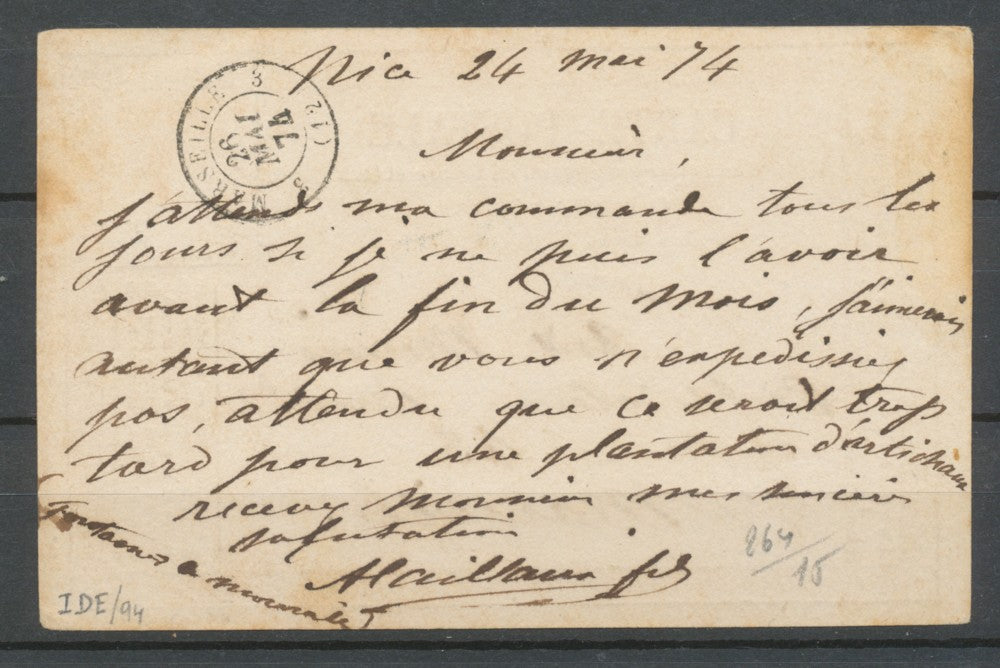 Nice 24 mai 74
MARSEILLE (12) 3
26
MAI
74
Monsieur,
J'attends ma commande tous les
jours si je ne puis l'avoir
avant la fin du mois, j'aimerais
autant que vous n'expédissiez
pas, attendu que ce serait trop
tard pour une plantation d'artichaux
recevez Monsieur mes sincères
salutation
fils
264/15
IDE/94